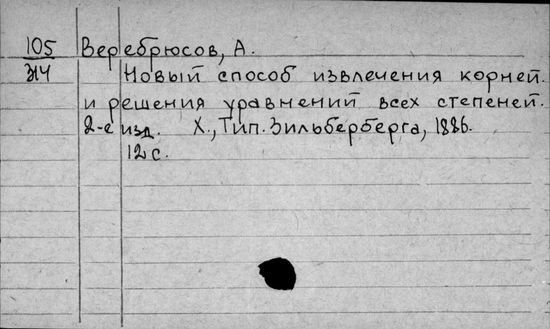 105 Веребрюсов, А.
314 Новый способ извлечения корней
и решения уравнений всех степеней.
2-е изд. Х., Тип. Зильберберга, 1886.
12 с.